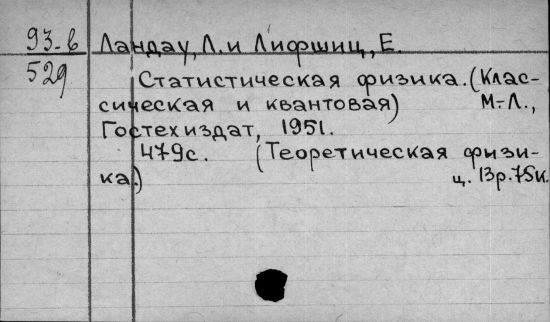 93-в Ландау, Л. и Лифшиц, Е.
529 Статистическая физика. (Клас-
сическая и квантовая) М.-Л.,
Гостехиздат, 1951.
479с. (Теоретическая физи-
ка.) ц. 13р.75к.